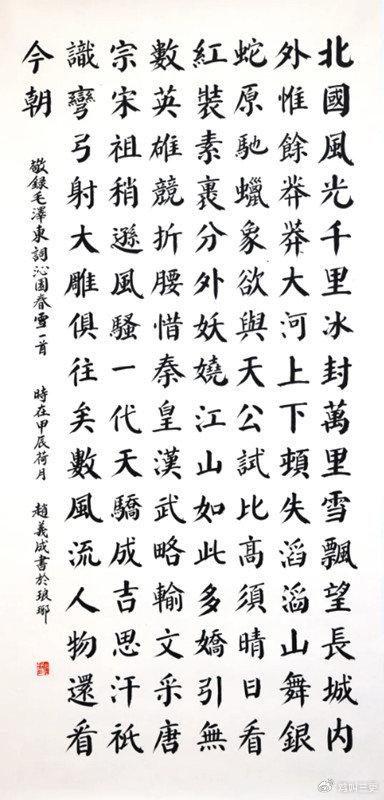 北國風光千里冰封萬里雪飄望長城內
外惟餘莽莽大河上下頓失滔滔山舞銀
蛇原馳蠟象欲與天公試比高須晴日看
紅裝素裹分外妖嬈江山如此多嬌引無
數英雄競折腰惜秦皇漢武略輸文采唐
宗宋祖稍遜風騷一代天驕成吉思汗祇
識彎弓射大雕俱往矣數風流人物還看
今朝
敬録毛澤東詞沁園春雪一首 時在甲辰荷月 趙義成書於琅琊